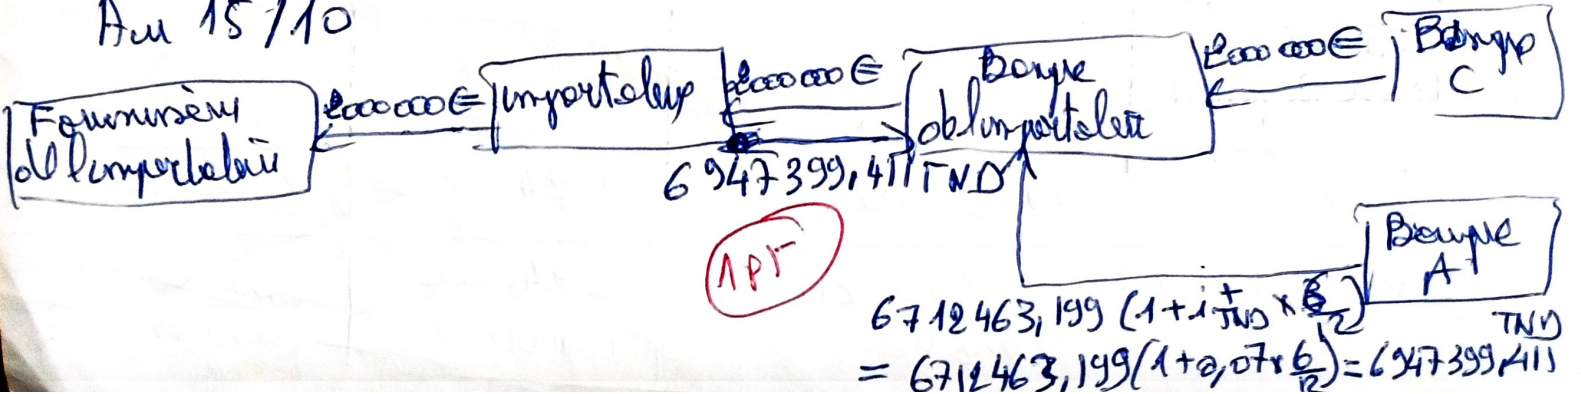 Au 15/10
Fournisseur de l'importateur
2000000€
importateur
2000000€
Banque de l'importateur
2000000€
Banque C
6947399,411 TND
1pt
Banque A
6712463,199 (1+i⁺TND × 6/12)
= 6712463,199(1+0,07×6/12) = 6947399,411 TND